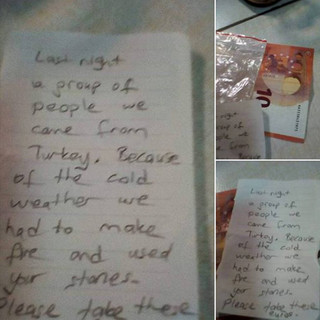 Last night
a group of
people we
came from
Turkey. Because
of the cold
weather we
had to make
fire and used
your stones.
Please take these
10
Last night
a group of
people we
came from
Turkey. Because
of the cold
weather we
had to make
fire and used
your stones.
Please take these